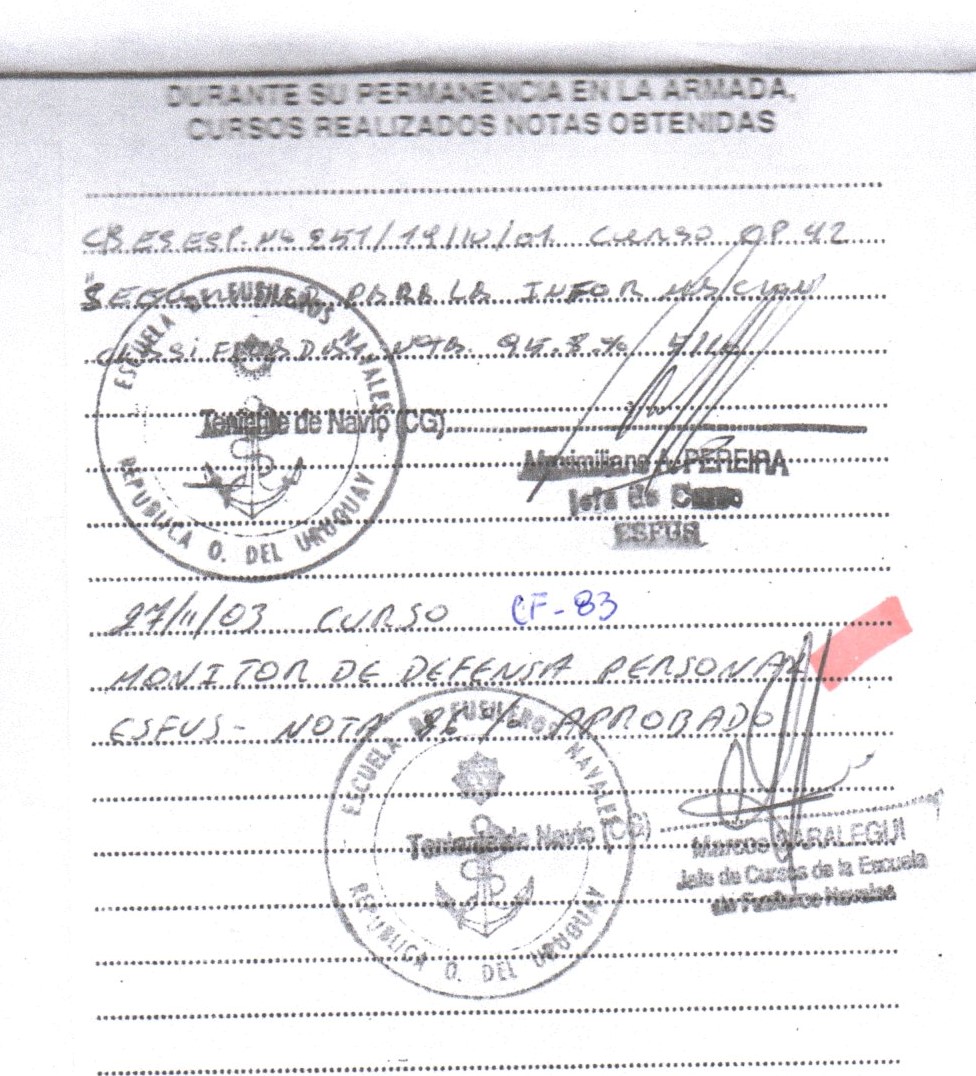 DURANTE SU PERMANENCIA EN LA ARMADA,
CURSOS REALIZADOS NOTAS OBTENIDAS
CURSO OP 42
PARA LA INFORMACION
NOTA
ESCUELA DE FUSILEROS NAVALES
REPUBLICA O. DEL URUGUAY
Teniente de Navío (CG)
Maximiliano A. PEREIRA
Jefe de Curso
ESFUS
27/11/03 CURSO CF-83
MONITOR DE DEFENSA PERSONAL
ESFUS- NOTA 86 % APROBADO
ESCUELA DE FUSILEROS NAVALES
REPUBLICA O. DEL URUGUAY
Teniente de Navío (CG)
Marcos
Jefe de Cursos de la Escuela
de Fusileros Navales